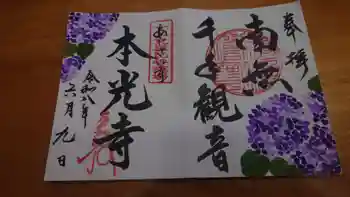 奉拝
南無
千手観音
あじさい寺
本光寺
令和八年
六月九日